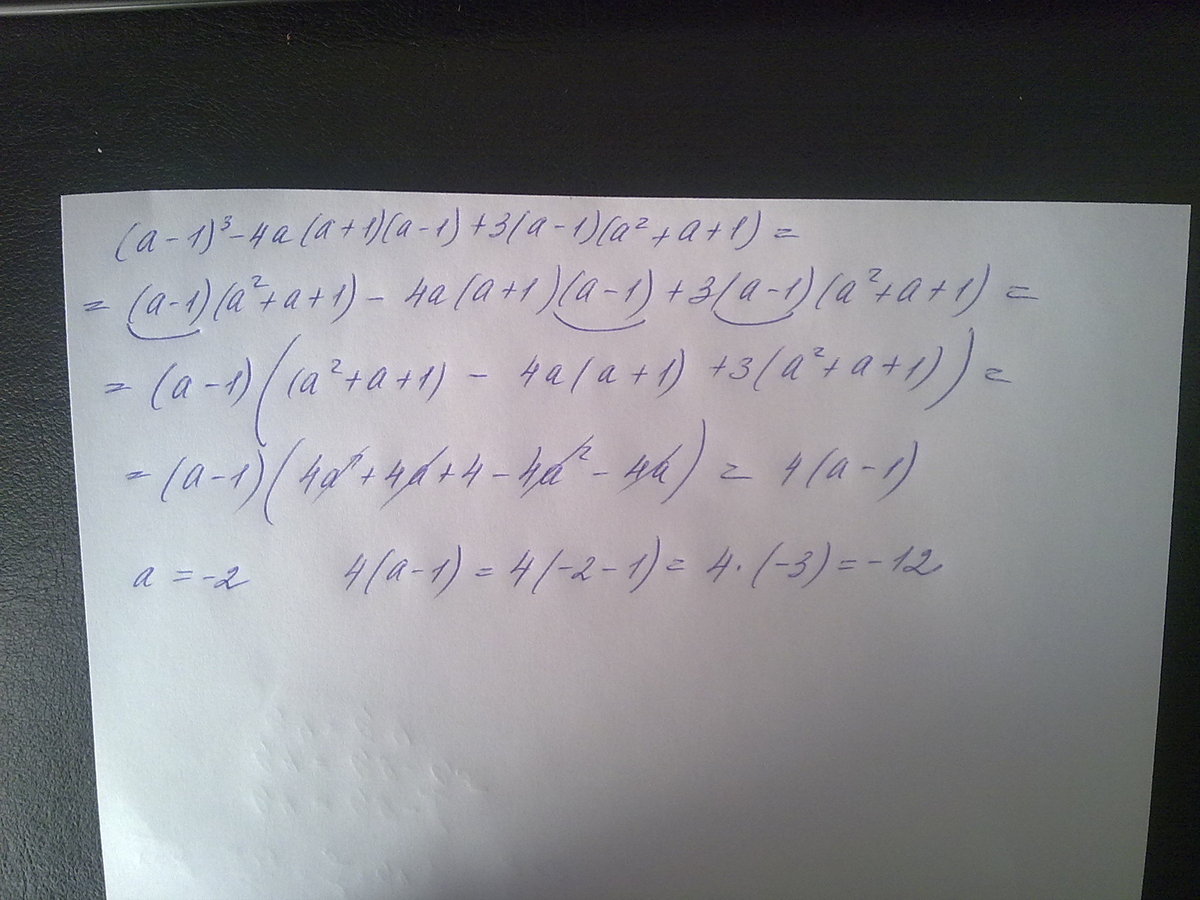 (a-1)³-4a(a+1)(a-1)+3(a-1)(a²+a+1)=
=(a-1)(a²+a+1)- 4a(a+1)(a-1)+3(a-1)(a²+a+1)=
=(a-1)((a²+a+1)- 4a(a+1) +3(a²+a+1))=
=(a-1)(4a²+4a+4-4a²-4a)= 4(a-1)
a=-2 4(a-1)=4(-2-1)=4·(-3)=-12